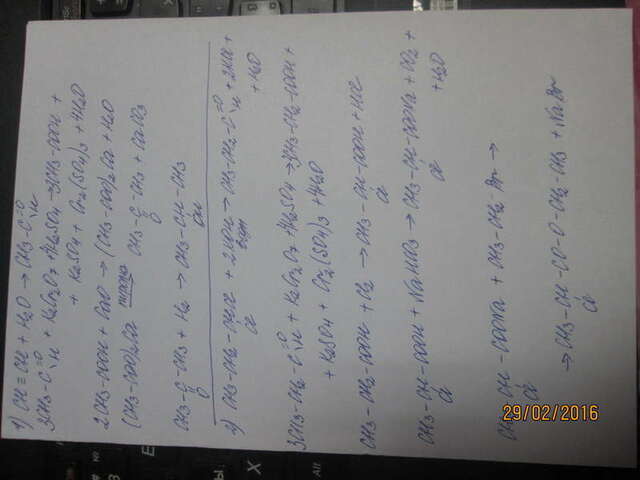 1) CH≡CH + H2O → CH3-C=O H
3CH3-C=O H + K2Cr2O7 + 4H2SO4 → 3CH3-COOH +
+ K2SO4 + Cr2(SO4)3 + 4H2O
2CH3-COOH + CaO → (CH3-COO)2Ca + H2O
(CH3-COO)2Ca CH3-C-CH3 + CaCO3
O
CH3-C-CH3 + H2 → CH3-CH-CH3
O OH
2) CH3-CH2-CHCl + 2KOH → CH3-CH2-C=O H + 2KCl +
Cl + H2O
3CH3-CH2-C=O H + K2Cr2O7 + 4H2SO4 → 3CH3-CH2-COOH +
+ K2SO4 + Cr2(SO4)3 + 4H2O
CH3-CH2-COOH + Cl2 → CH3-CH-COOH + HCl
Cl
CH3-CH-COOH + NaHCO3 → CH3-CH-COONa + CO2 +
Cl Cl + H2O
CH3-CH-COONa + CH3-CH2-Br →
Cl
→ CH3-CH-CO-O-CH2-CH3 + NaBr
Cl
29/02/2016